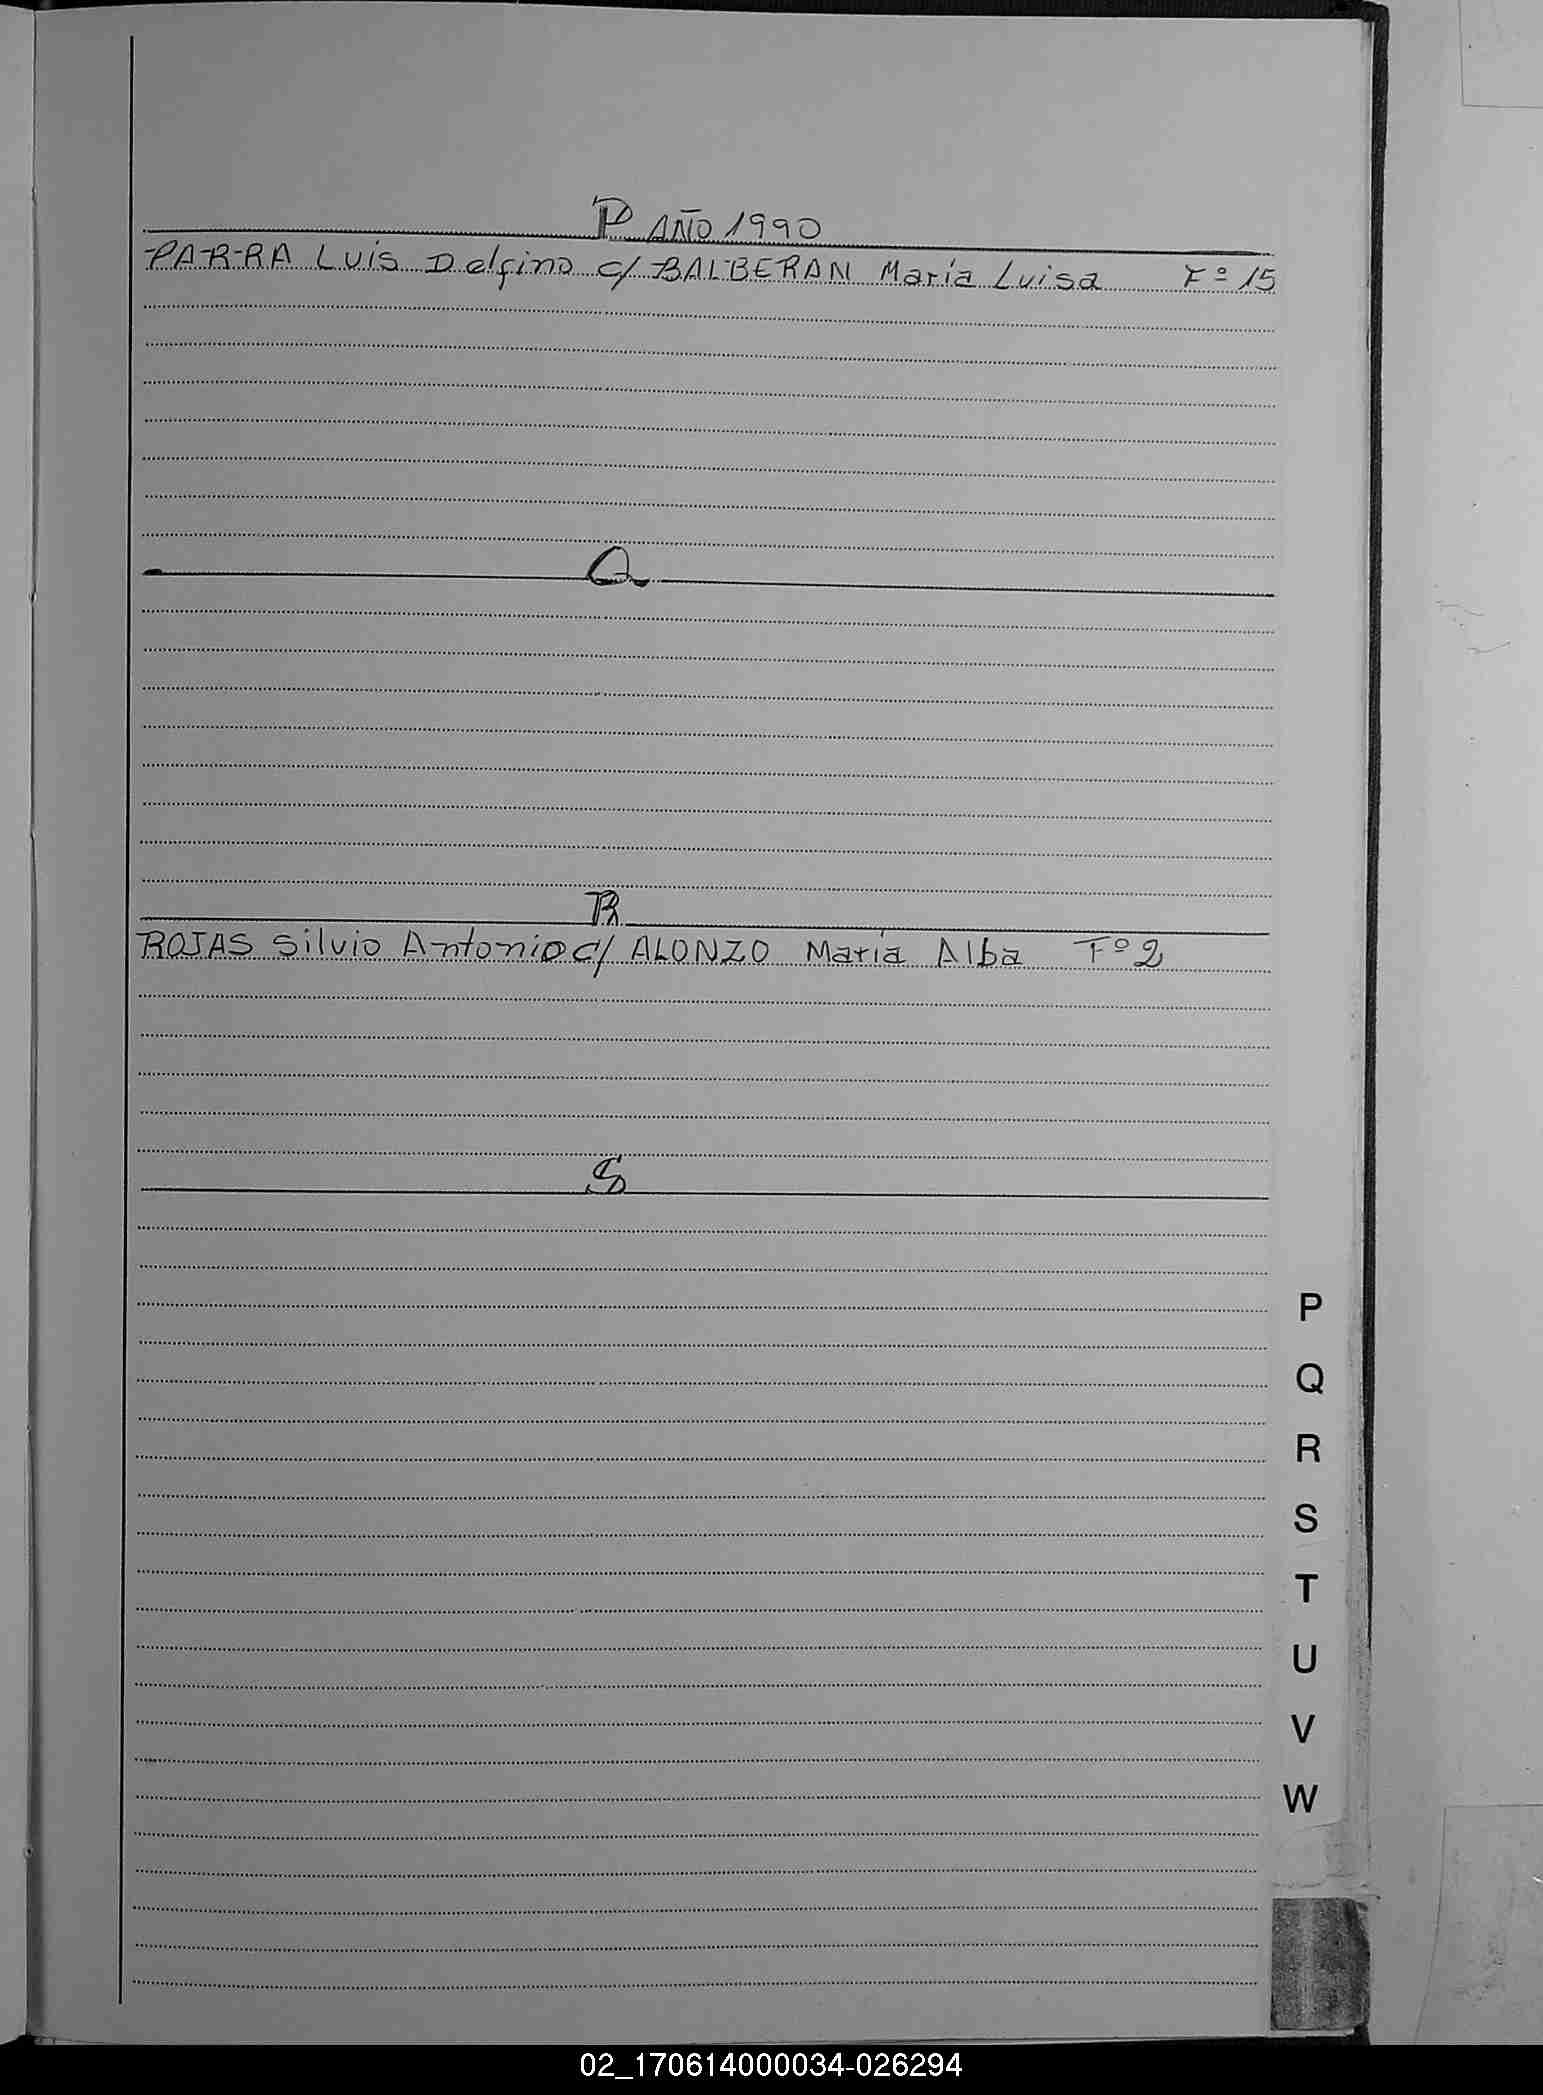 P AÑO 1990
PARRA Luis Delfino c/ BALBERAN María Luisa Fº 15
Q
R
ROJAS Silvio Antonio c/ ALONZO María Alba Fº 2
S
P
Q
R
S
T
U
V
W
02_170614000034-026294